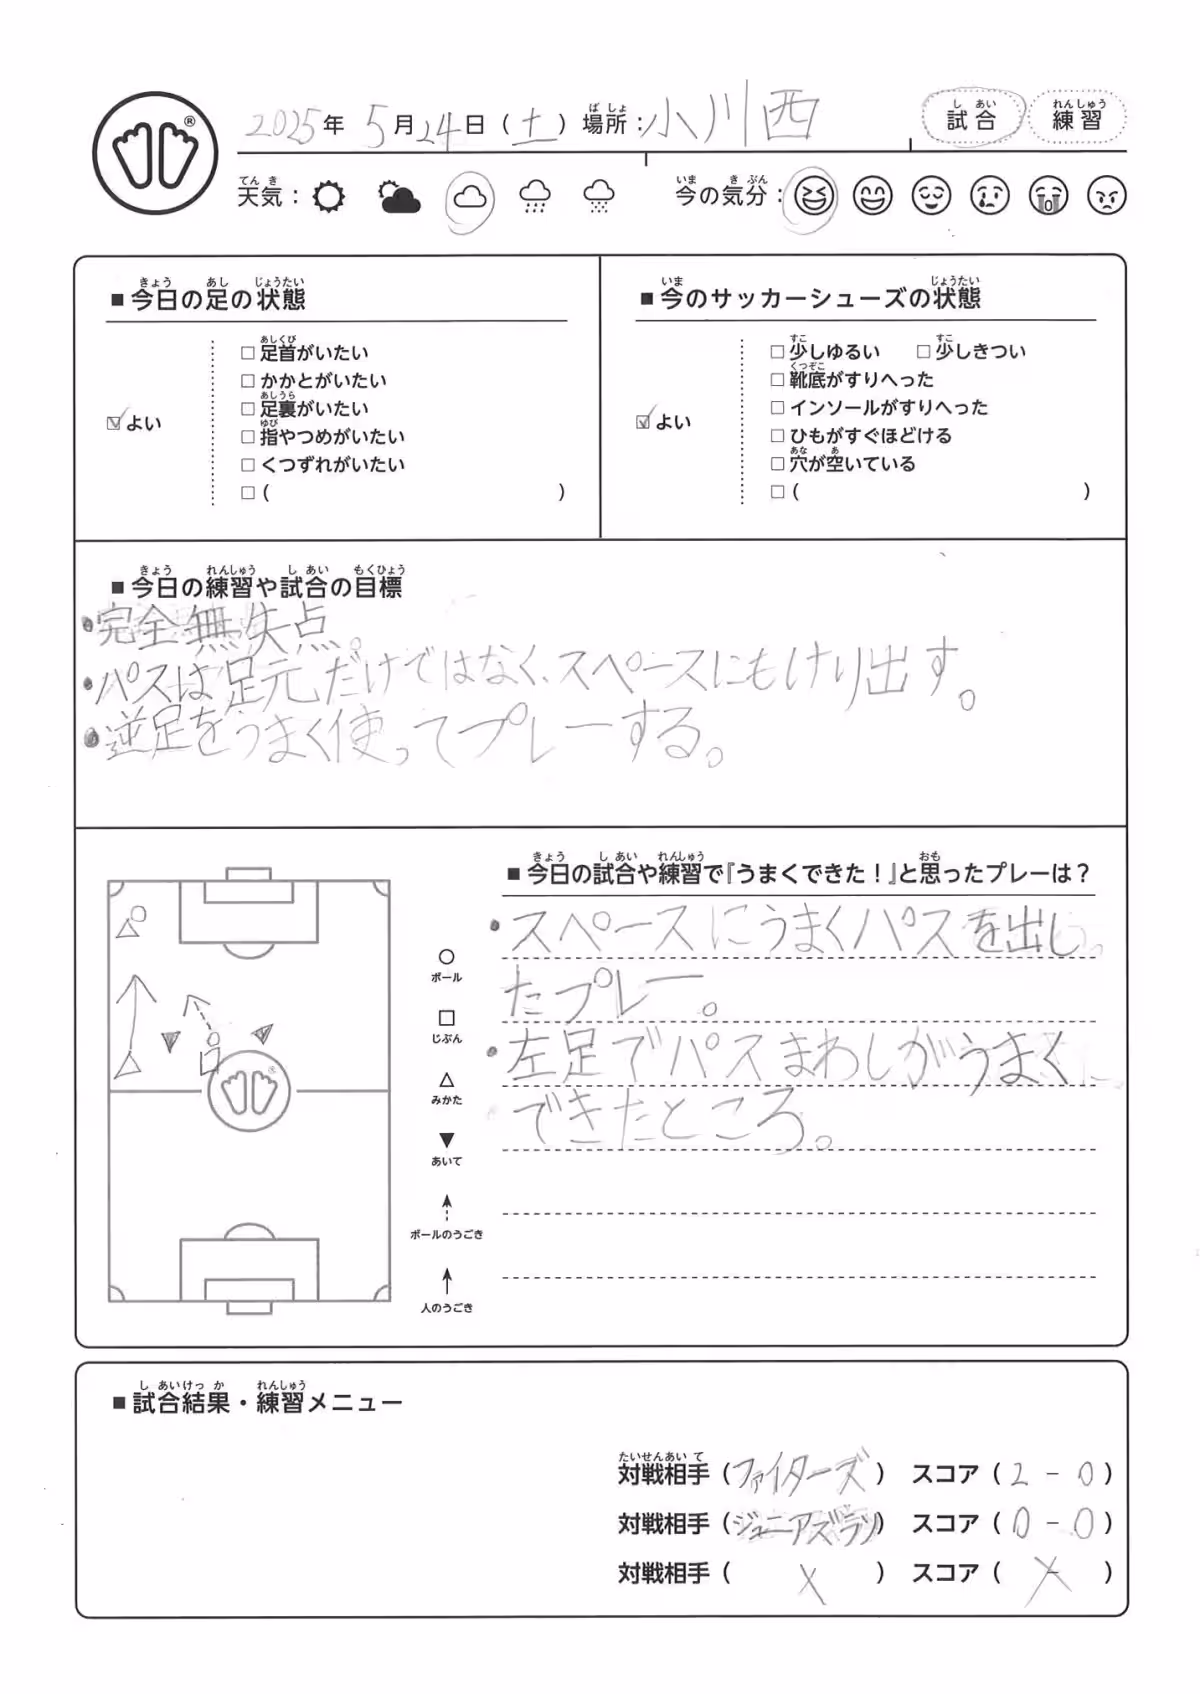 2025年 5月24日（土）場所：小川西 試合 練習
天気： 今の気分：
■今日の足の状態
よい
足首がいたい
かかとがいたい
足裏がいたい
指やつめがいたい
くつずれがいたい
（ ）
■今のサッカーシューズの状態
よい
少しゆるい 少しきつい
靴底がすりへった
インソールがすりへった
ひもがすぐほどける
穴が空いている
（ ）
■今日の練習や試合の目標
・完全無失点。
・パスは足元だけではなく、スペースにもけり出す。
・逆足をうまく使ってプレーする。
ボール
じぶん
みかた
あいて
ボールのうごき
人のうごき
■今日の試合や練習で『うまくできた！』と思ったプレーは？
・スペースにうまくパスを出し
たプレー。
・左足でパスまわしがうまく
できたところ。
■試合結果・練習メニュー
対戦相手（ファイターズ） スコア（2 - 0）
対戦相手（ジュニアズラソ） スコア（0 - 0）
対戦相手（ × ） スコア（ × ）